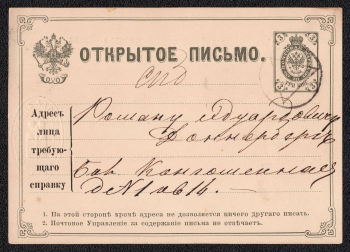 ОТКРЫТОЕ ПИСЬМО.
спб
Адресъ
лица
требую-
щаго
справку
Роману Эдуардовичу
д № 1 кв 16.
1. На этой сторонѣ кромѣ адреса не дозволяется ничего другаго писать.
2. Почтовое Управленіе за содержаніе письма не отвѣчаетъ.